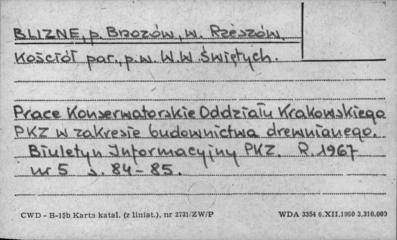 BLIZNE, p. Brzozów, w. Rzeszów.
Kościół par., p.w. W.W. Świętych.
Prace Konserwatorskie Oddziału Krakowskiego
PKZ w zakresie budownictwa drewnianego.
Biuletyn Informacyjny PKZ. R. 1967
nr 5 s. 84-85.
CWD - B-15b Karta katal. (z liniat.), nr 2731/ZW/P WDA 3354 6.XII.1960 3.210.000